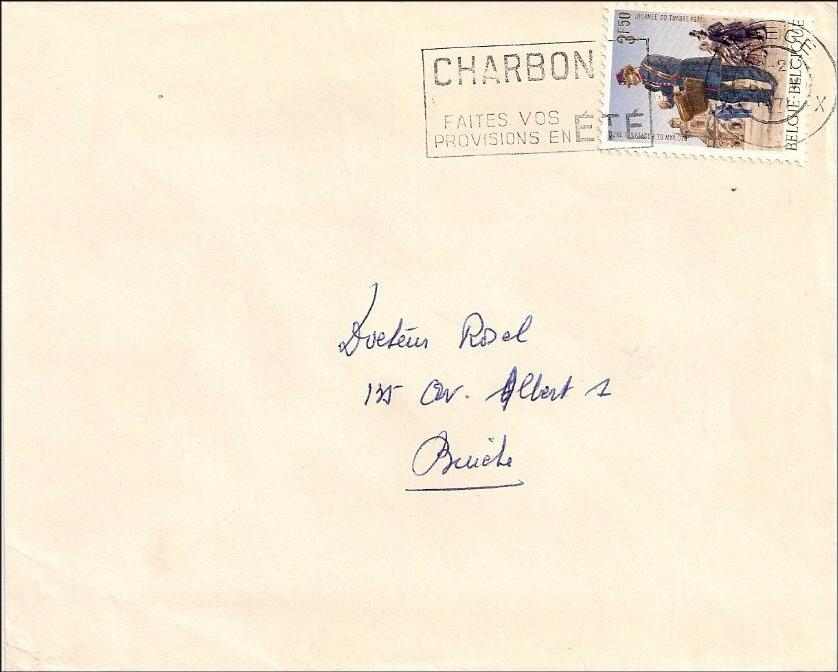 CHARBON
FAITES VOS
PROVISIONS EN ÉTÉ
3F50
JOURNÉE DU TIMBRE 1971
BELGIË-BELGIQUE
X
Docteur Rosel
135 Av. Albert 1
Binche